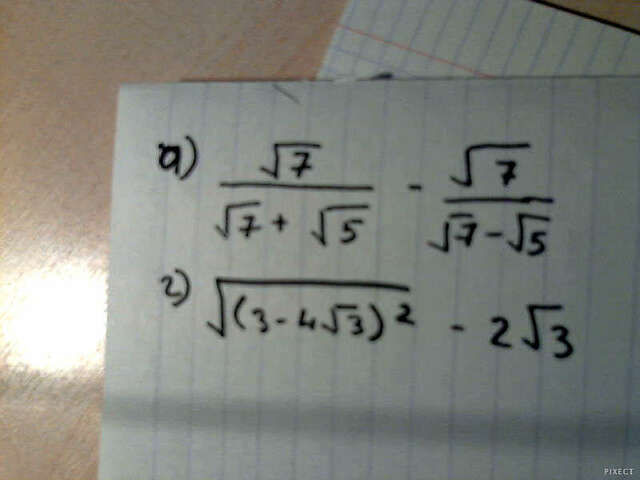 а) √7/(√7 + √5) - √7/(√7 - √5)
г) √((3 - 4√3)²) - 2√3
PIXECT